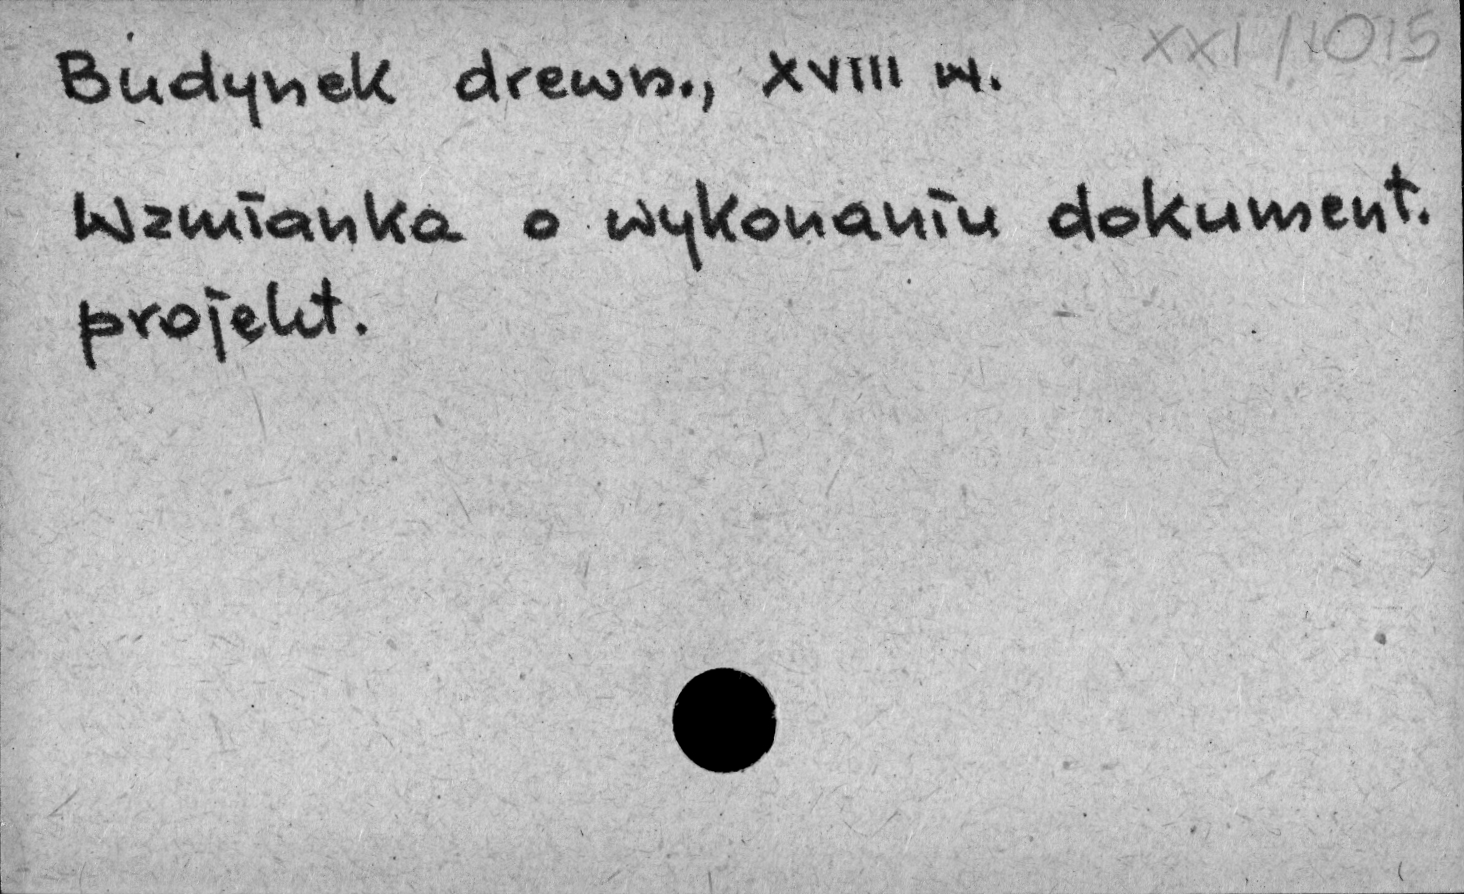 XXI/1015
Budynek drewn., XVIII w.
Wzmianka o wykonaniu dokument.
projekt.